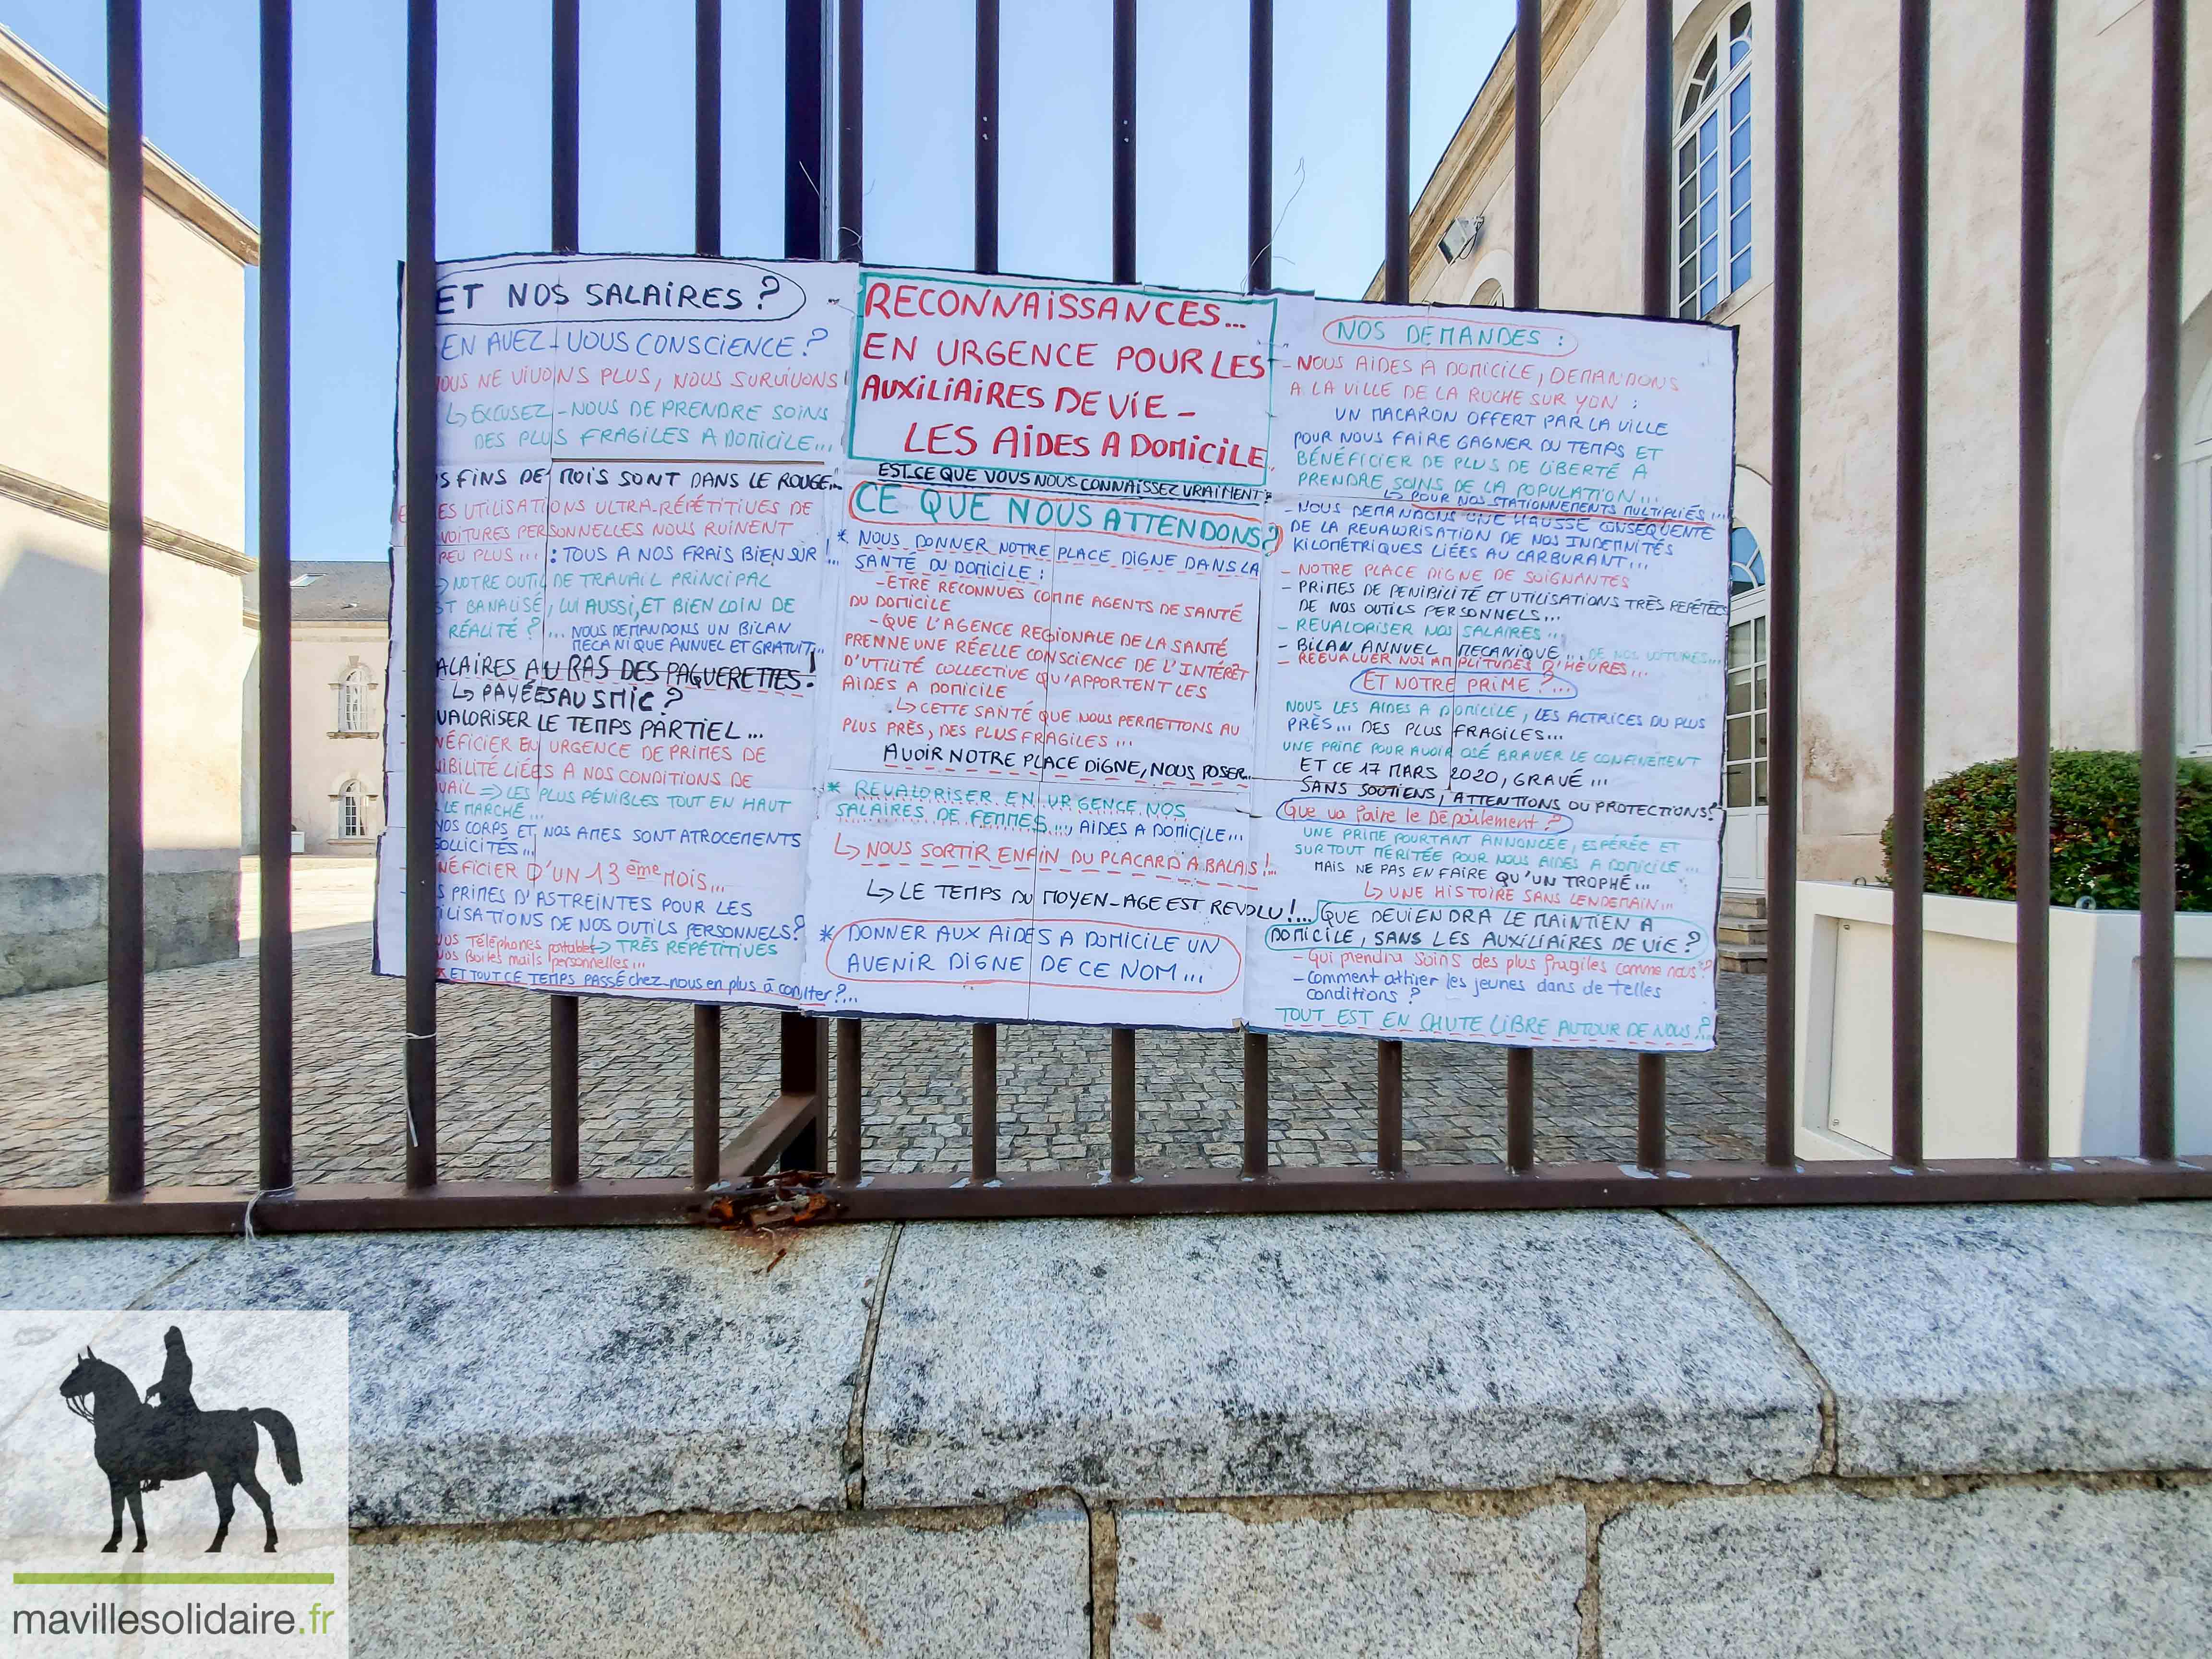 ET NOS SALAIRES ?
EN AVEZ-VOUS CONSCIENCE ?
OUS NE VIVONS PLUS, NOUS SURVIVONS !
↳ EXCUSEZ-NOUS DE PRENDRE SOINS
DES PLUS FRAGILES A DOMICILE...
S FINS DE MOIS SONT DANS LE ROUGE...
ES UTILISATIONS ULTRA-RÉPÉTITIVES DE
VOITURES PERSONNELLES NOUS RUINENT
PEU PLUS... : TOUS A NOS FRAIS BIEN SUR !...
NOTRE OUTIL DE TRAVAIL PRINCIPAL
ST BANALISÉ, LUI AUSSI, ET BIEN LOIN DE
RÉALITÉ ? ... NOUS DEMANDONS UN BILAN
MECANIQUE ANNUEL ET GRATUIT...
ALAIRES AU RAS DES PAGUERETTES !
↳ PAYÉES AU SMIC ?
VALORISER LE TEMPS PARTIEL...
NÉFICIER EN URGENCE DE PRIMES DE
IBILITÉ LIÉES A NOS CONDITIONS DE
VAIL => LES PLUS PÉNIBLES TOUT EN HAUT
LE MARCHÉ...
NOS CORPS ET NOS AMES SONT ATROCEMENTS
SOLLICITÉS...
NÉFICIER D'UN 13 ème MOIS...
S PRIMES D'ASTREINTES POUR LES
ILISATIONS DE NOS OUTILS PERSONNELS ?
Nos Téléphones portables ↳ TRÈS REPÉTITIVES
Nos Boites mails personnelles...
ET TOUT CE TEMPS PASSÉ chez-nous en plus à compter ?...
RECONNAISSANCES...
EN URGENCE POUR LES
AUXILIAIRES DE VIE -
LES AIDES A DOMICILE.
EST.CE QUE VOUS NOUS CONNAISSEZ VRAIMENT ?
CE QUE NOUS ATTENDONS ?
* NOUS DONNER NOTRE PLACE DIGNE DANS LA
SANTÉ DU DOMICILE :
- ETRE RECONNUES COMME AGENTS DE SANTÉ
DU DOMICILE
- QUE L'AGENCE REGIONALE DE LA SANTÉ
PRENNE UNE RÉELLE CONSCIENCE DE L'INTÉRÊT
D'UTILITÉ COLLECTIVE QU'APPORTENT LES
AIDES A DOMICILE
↳ CETTE SANTÉ QUE NOUS PERMETTONS AU
PLUS PRÈS, DES PLUS FRAGILES ...
AVOIR NOTRE PLACE DIGNE, NOUS POSER...
* REVALORISER EN URGENCE NOS
SALAIRES DE FEMMES..., AIDES A DOMICILE...
↳ NOUS SORTIR ENFIN DU PLACARD A BALAIS !...
↳ LE TEMPS DU MOYEN-AGE EST REVOLU !...
* DONNER AUX AIDES A DOMICILE UN
AVENIR DIGNE DE CE NOM...
NOS DEMANDES :
- NOUS AIDES A DOMICILE, DEMANDONS
A LA VILLE DE LA ROCHE SUR YON :
UN MACARON OFFERT PAR LA VILLE
POUR NOUS FAIRE GAGNER DU TEMPS ET
BÉNÉFICIER DE PLUS DE LIBERTÉ A
PRENDRE SOINS DE LA POPULATION...
↳ POUR NOS STATIONNEMENTS MULTIPLIÉS...
- NOUS DEMANDONS UNE HAUSSE CONSEQUENTE
DE LA REVALORISATION DE NOS INDEMNITÉS
KILOMÉTRIQUES LIÉES AU CARBURANT...
- NOTRE PLACE DIGNE DE SOIGNANTES
- PRIMES DE PENIBILITÉ ET UTILISATIONS TRÈS REPÉTÉES
DE NOS OUTILS PERSONNELS...
- REVALORISER NOS SALAIRES...
- BILAN ANNUEL MECANIQUE... DE NOS VOITURES...
- REEVALUER NOS AMPLITUDES D'HEURES...
ET NOTRE PRIME ?...
NOUS LES AIDES A DOMICILE, LES ACTRICES DU PLUS
PRÈS... DES PLUS FRAGILES...
UNE PRIME POUR AVOIR OSÉ BRAVER LE CONFINEMENT
ET CE 17 MARS 2020, GRAVÉ ...
SANS SOUTIENS, ATTENTIONS OU PROTECTIONS ?
Que va faire le Département ?
UNE PRIME POURTANT ANNONCÉE, ESPÉRÉE ET
SURTOUT MÉRITÉE POUR NOUS AIDES A DOMICILE...
MAIS NE PAS EN FAIRE QU'UN TROPHÉ...
↳ UNE HISTOIRE SANS LENDEMAIN...
QUE DEVIENDRA LE MAINTIEN A
DOMICILE, SANS LES AUXILIAIRES DE VIE ?
- Qui prendra soins des plus fragiles comme nous ?
- Comment attirer les jeunes dans de telles
conditions ?
TOUT EST EN CHUTE LIBRE AUTOUR DE NOUS ?
mavillesolidaire.fr